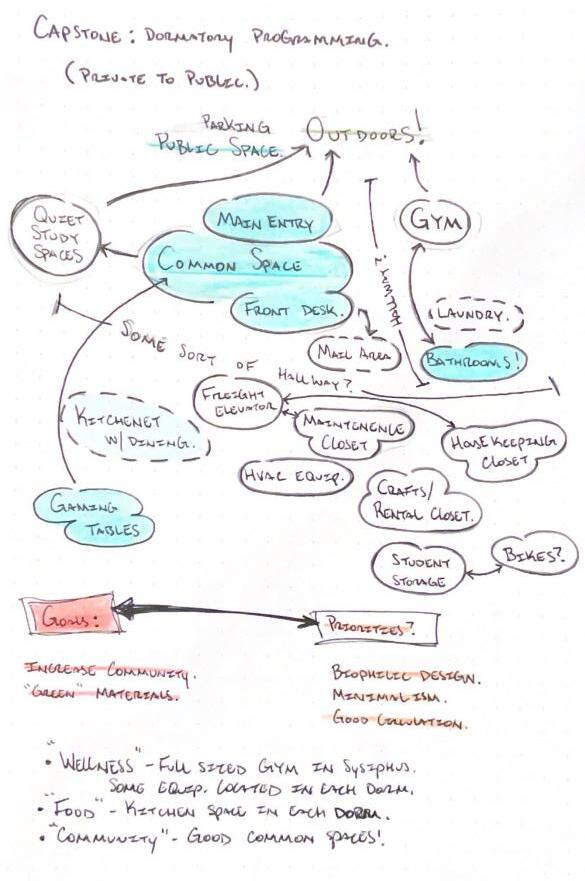 CAPSTONE: DORMATORY PROGRAMMING.
(PRIVATE TO PUBLIC.)
PARKING
PUBLIC SPACE.
OUTDOORS!
QUIET
STUDY
SPACES
MAIN ENTRY
GYM
COMMON SPACE
FRONT DESK.
HALLWAY?
LAUNDRY.
MAIL AREA
BATHROOMS!
SOME SORT OF HALLWAY?
FREIGHT
ELEVATOR
KITCHENET
W/ DINING.
MAINTENENCE
CLOSET
HOUSEKEEPING
CLOSET
HVAC EQUIP.
CRAFTS/
RENTAL CLOSET.
GAMING
TABLES
STUDENT
STORAGE
BIKES?
GOALS:
PRIORITIES?
INCREASE COMMUNITY.
"GREEN" MATERIALS.
BIOPHILIC DESIGN.
MINIMALISM.
GOOD CIRCULATION.
• "WELLNESS" - FULL SIZED GYM IN SYSIPHUS.
SOME EQUIP. LOCATED IN EACH DORM.
• "FOOD" - KITCHEN SPACE IN EACH DORM.
• "COMMUNITY" - GOOD COMMON SPACES!